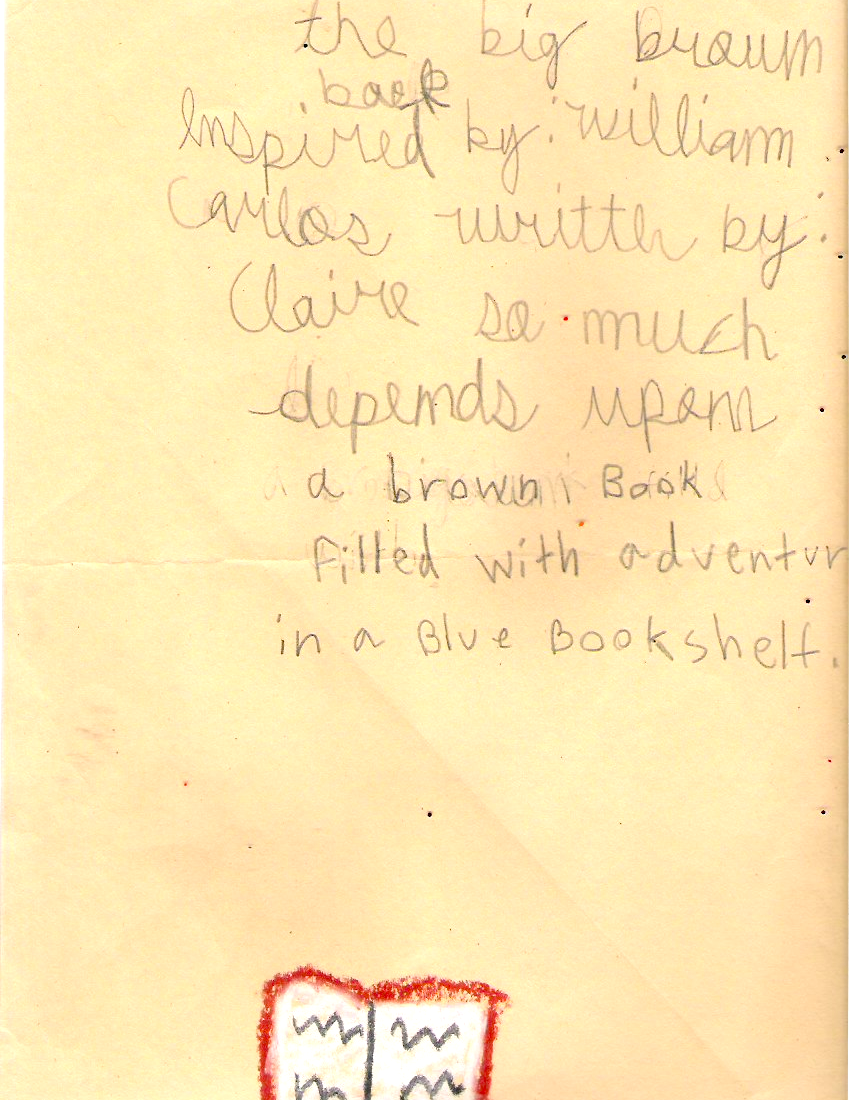 the big brown
book
Inspired by: william
Carlos written by:
Claire so much
depends upon
a brown Book
filled with adventur
in a Blue Bookshelf.